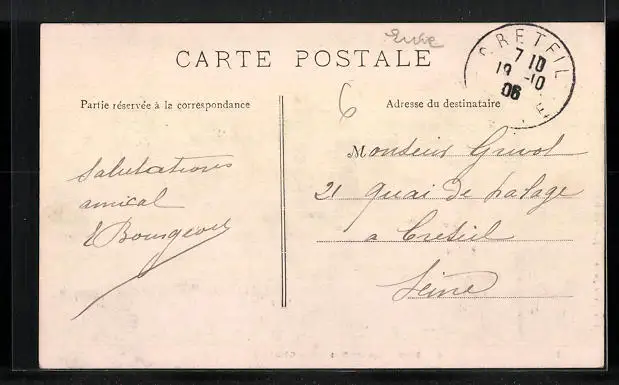 Eure
CARTE POSTALE
CRETEIL
7 10
19 -10
06
Partie réservée à la correspondance
6
Adresse du destinataire
Salutations
amical
E Bourgeois
Monsieur Grivot
21 quai de halage
a Creteil
Seine